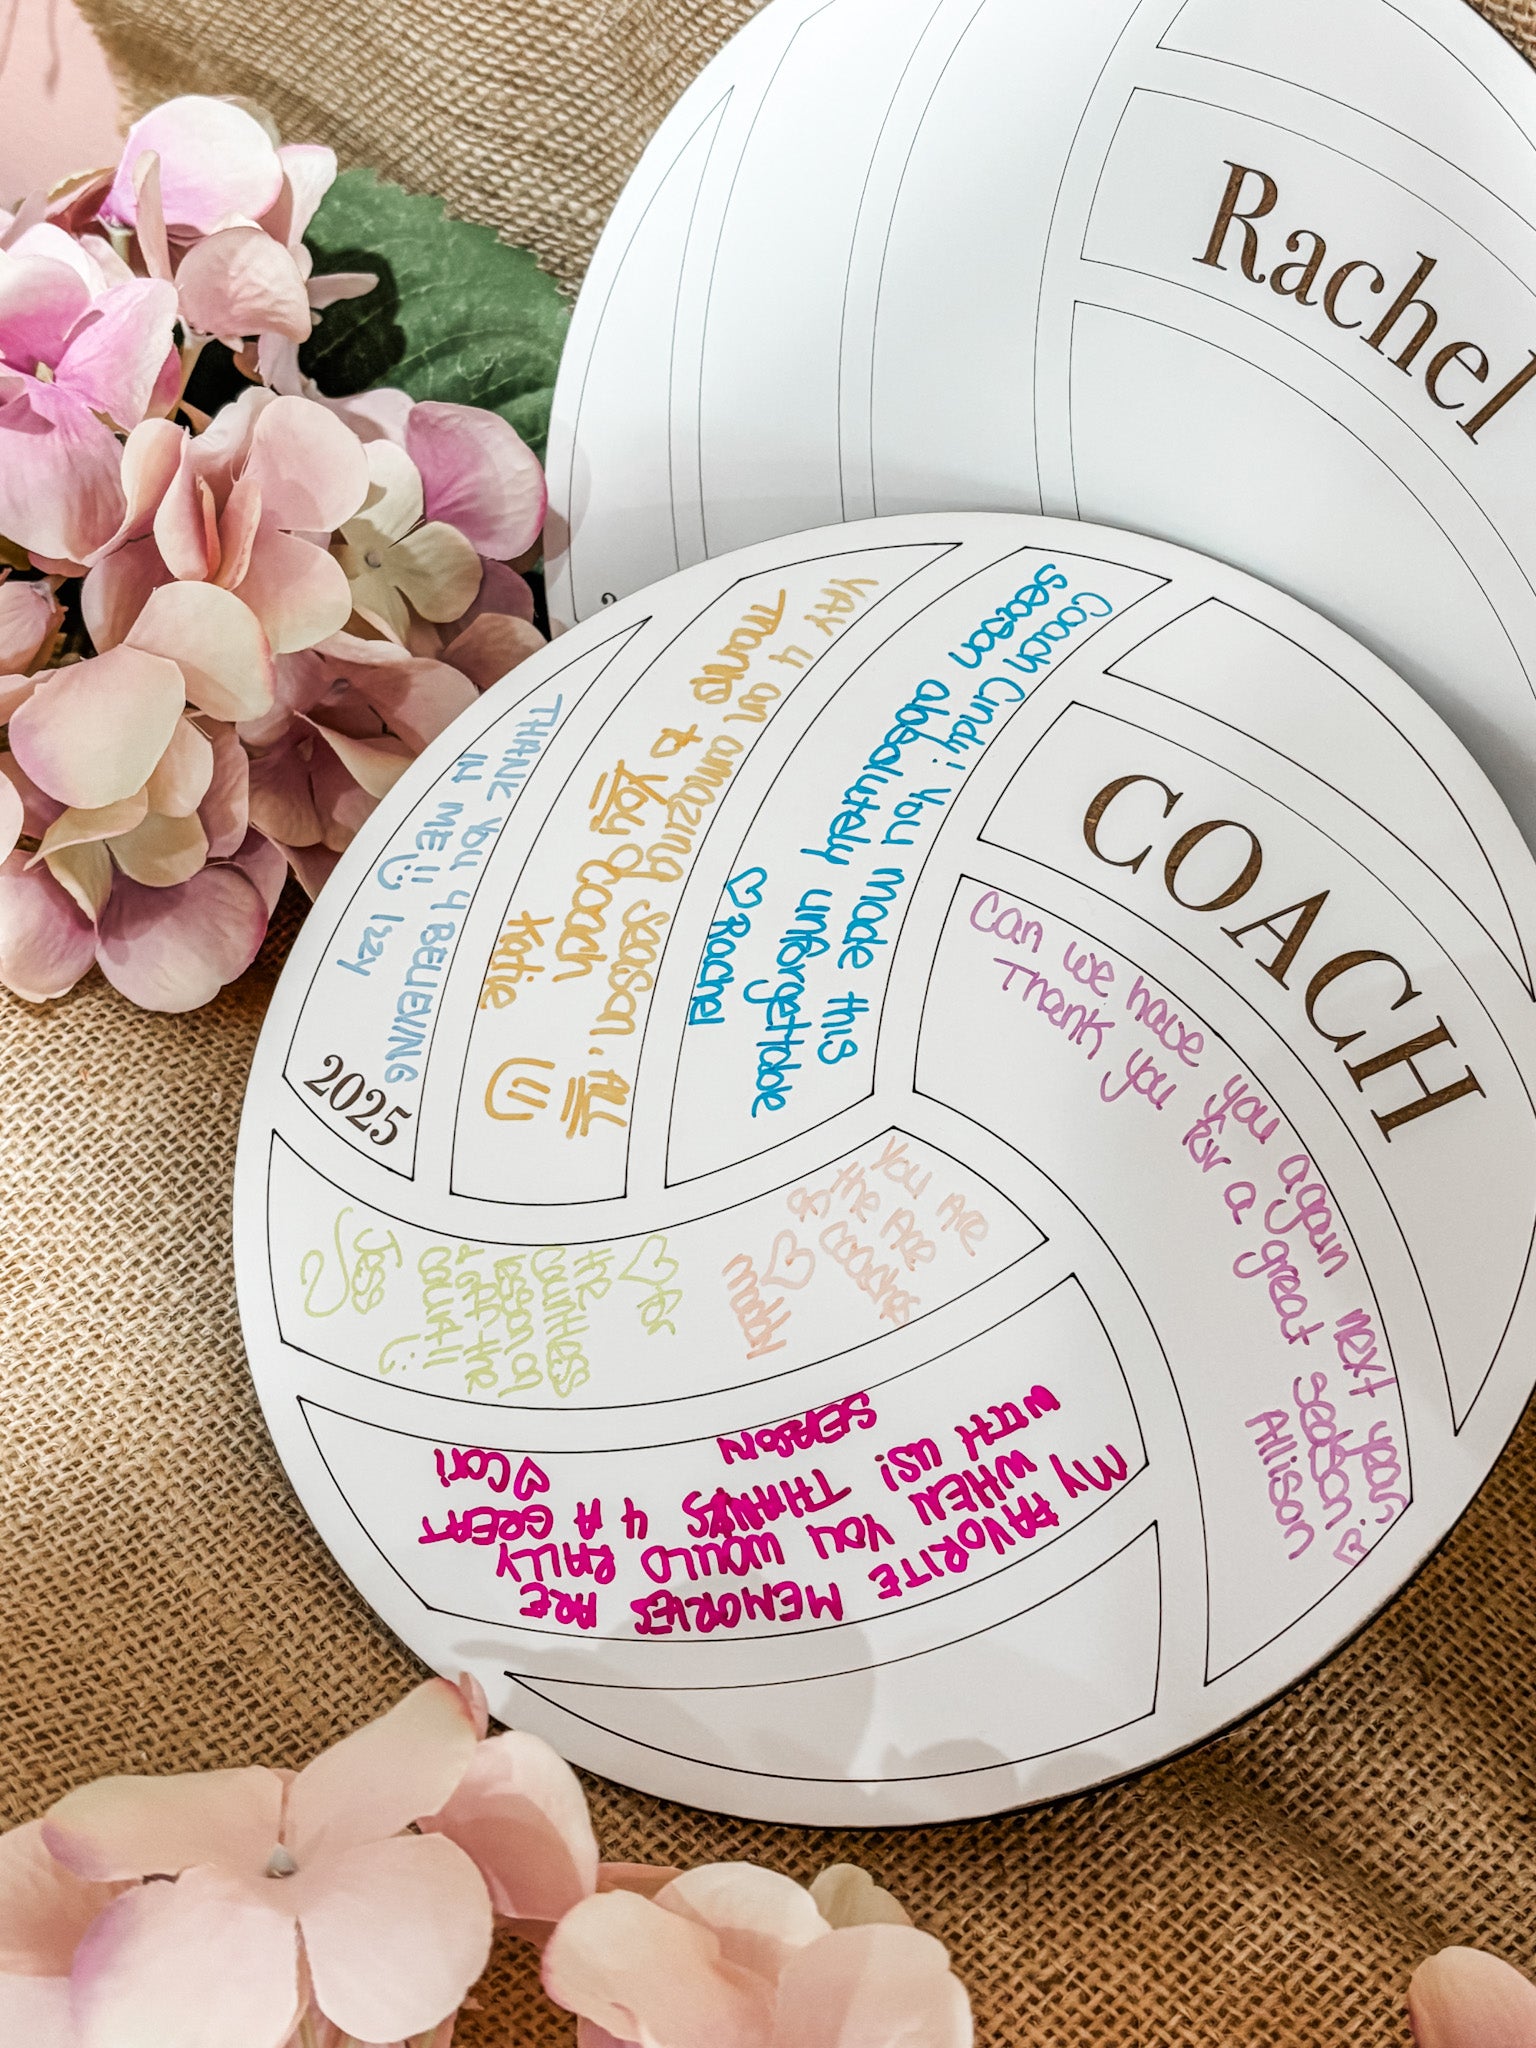 Rachel
COACH
2025
THANK YOU 4 BELIEVING
IN ME!! Izzy
YAY 4 an amazing season, ALL
Thanks to You Coach
Katie
Coach Cindy! You made this
season absolutely unforgettable
♡Rachel
Can we have you again next year
Thank you for a great season P.S.
Allison
YOU ARE
THE
OF THE
♡
♡ for
THE
LESSON OF
Jess
MY FAVORITE MEMORIES ARE
WHEN YOU WOULD RALLY
WITH US! THANKS 4 A GREAT
SEASON
♡Cori